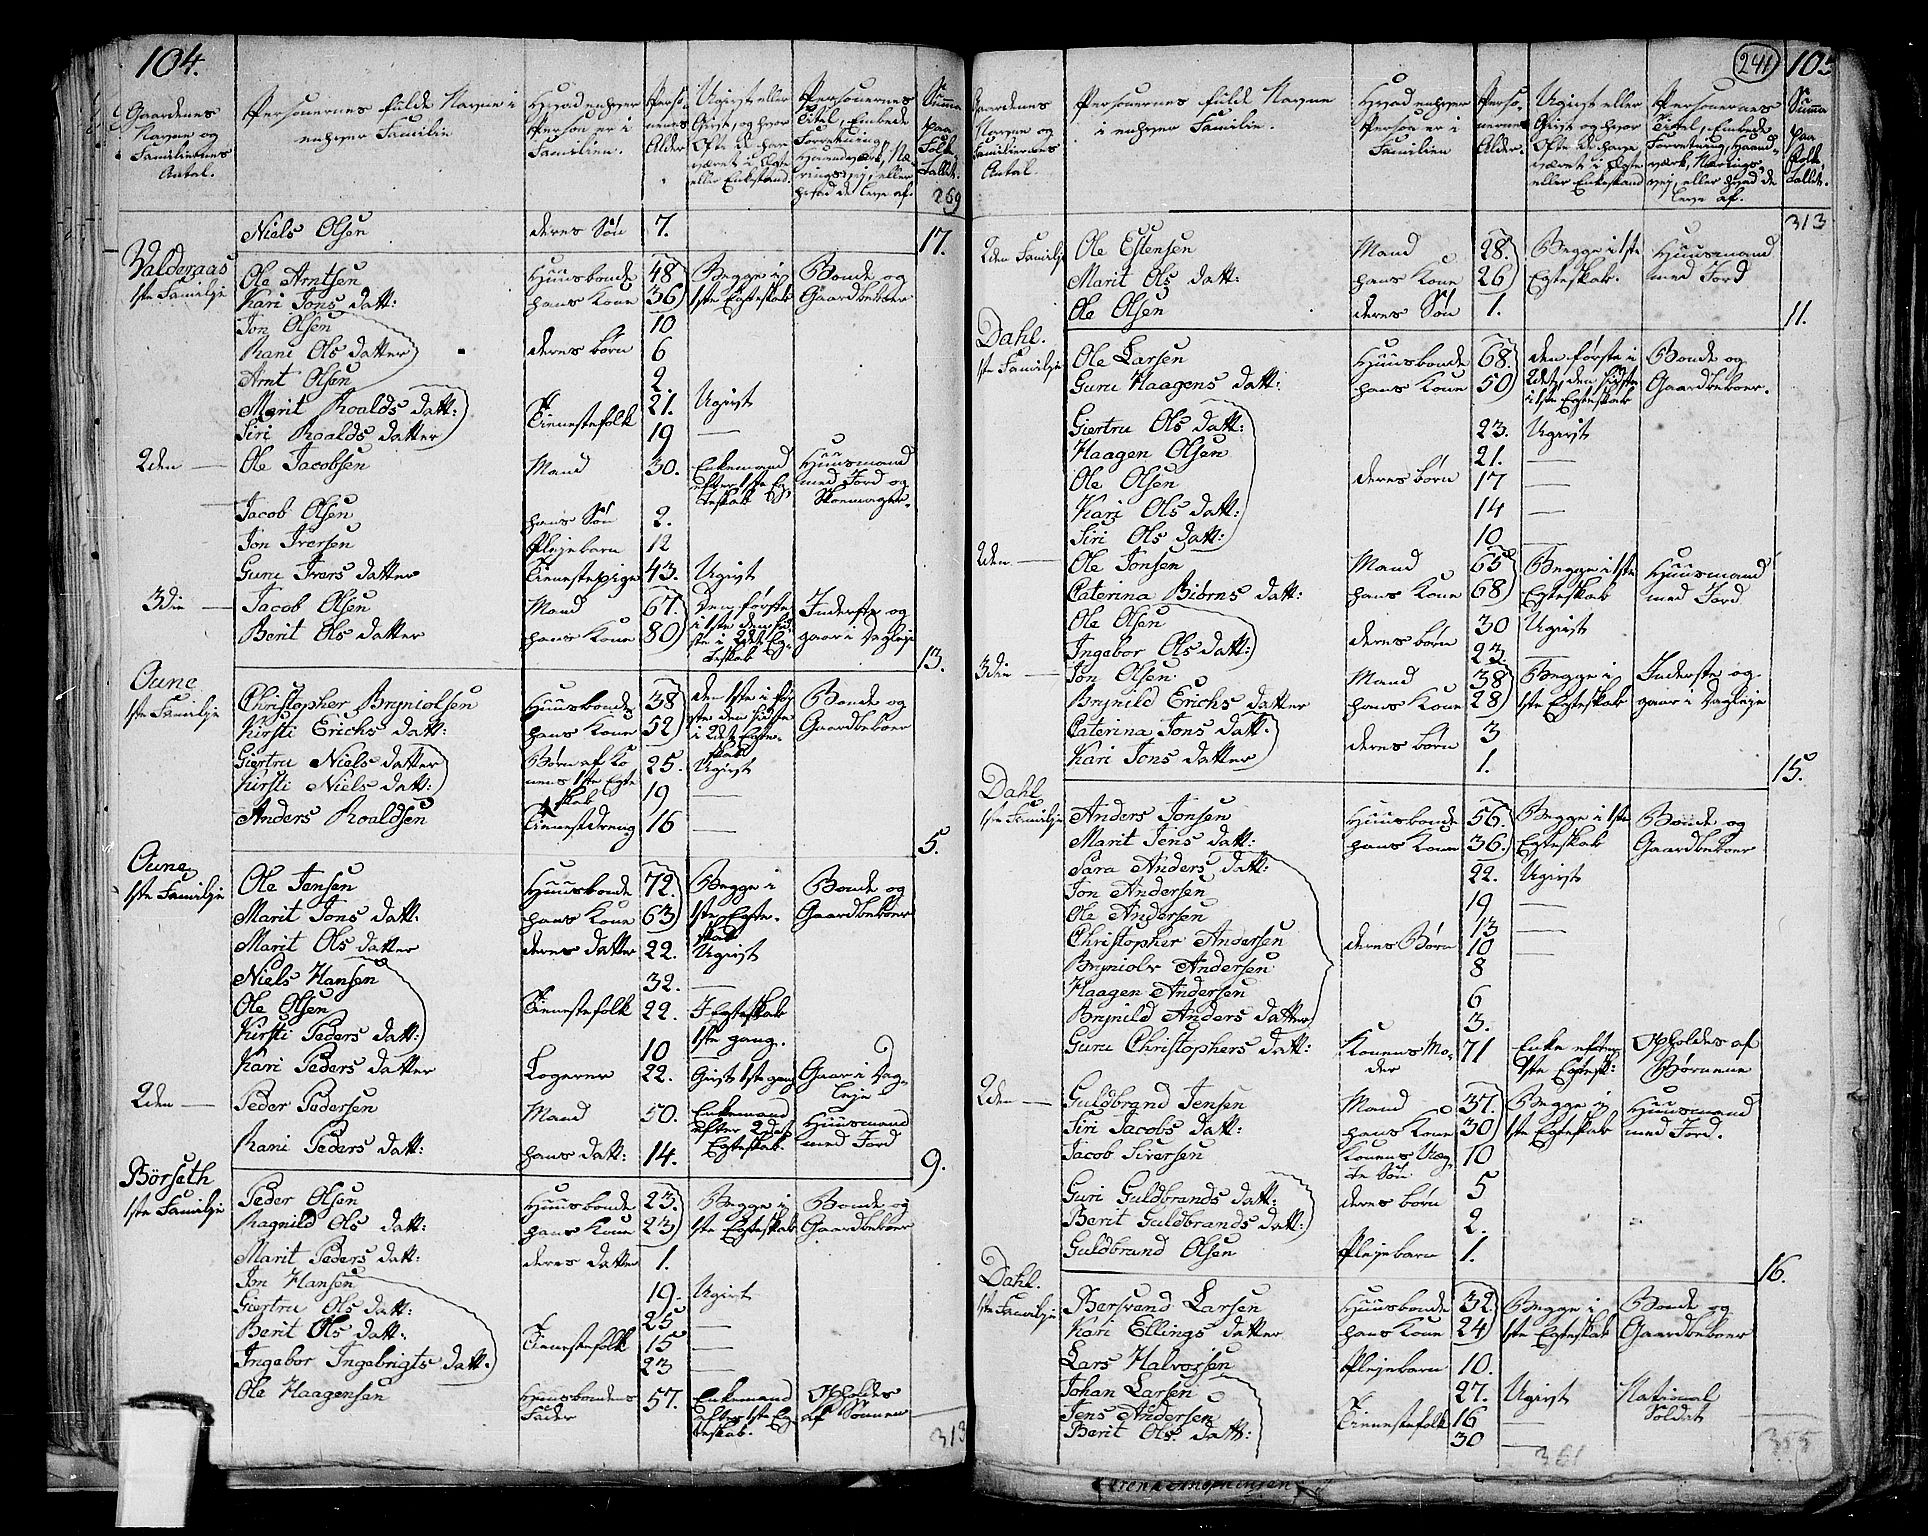 104.
Gaardenes Navne og Familiernes Antal.
Personernes fulde Navne i enhver Familie
Hvad enhver Person er i Familien.
Personernes Alder
Ugivt eller Givt, og hvor Ofte de have været i Egte eller Enkestand
Personernes Titel, Embede Forretning Haandverk, Næringsvej, eller hvad de leve af.
Summa paa Folketallet.
269
Niels Olsen deres Søn 7. 17.
Valderaas
1ste Familje
Ole Arntsen Huusbonde 48 Begge i Bonde og
Kari Jons datt: hans Kone 36 1ste Egteskab Gaardbeboer
Jon Olsen 10
Rani Ols datter deres børn 6
Arnt Olsen 2.
Marit Roalds datt: Tienestefolk 21. Ugivt
Siri Roalds datter 19 —
2den — Ole Jacobsen Mand 30. Enkemand efter 1ste Egteskab Huusmand med Jord og Skoemager.
Jacob Olsen hans Søn 2.
Jon Iversen Plejebarn 12
Guru Ivers datter Tienestepige 43. Ugivt
3die — Jacob Olsen Mand 67. Den første i 1ste den sidste i 2det Egteskab Inderste og gaar i Dagleje
Berit Ols datter hans Kone 80
13.
Oune
1ste Familje
Christopher Brynjolsen Huusbonde 38 den 1ste i første den sidste i 2det Egteskab Bonde og Gaardbeboer
Kirsti Erichs datt: hans Kone 52
Giertru Niels datter Børn af Konens 1ste Egteskab 25. Ugivt
Kirsti Niels datt: 19 —
Anders Roaldsen Tienestdreng 16 —
5.
Oune
1ste Familje
Ole Jensen Huusbonde 72. Begge i 1ste Egteskab Bonde og Gaardbeboer
Marit Jons datt: hans Kone 63
Marit Ols datter deres datter 22. Ugivt
Niels Hansen 32. —
Ole Olsen Tienestefolk 22. I Egteskab 1ste gang.
Kirsti Peders datt: 10 —
Kari Peders datter Logerer 22. Givt 1ste gang Gaar i Dagleje
2den — Peder Pedersen Mand 50. Enkemand efter 2det Egteskab. Huusmand med Jord
Rani Peders datt: hans datt: 14.
9.
Börseth
1ste Familje
Peder Olsen Huusbonde 23. Begge i Bonde og
Ragnild Ols datt: hans Kone 23 1ste Egteskab Gaardbeboer
Marit Peders datt: deres datter 1.
Jon Hansen 19. Ugivt
Giertru Ols datt: 25 —
Berit Ols datt: Tienestefolk 15 —
Ingebor Ingebrigts datt. 23 —
Ole Haagensen Huusbondens Fader 57. Enkemand efter 1ste Egteskab. Opholdes af Sønnen
313
241
105
Gaardenes Navne og Familiernes Antal
Personernes fulde Navne i enhver Familie.
Hvad enhver Person er i Familien
Personernes Alder.
Ugivt eller Givt og hvor Ofte de have været i Egte eller Enkestand
Personernes Titel, Embede Forretning, Haandværk, Næringsvej, eller hvad de leve af.
Summa paa Folketallet.
313
2den Familje Ole Estensen Mand 28. Begge i 1ste Huusmand
Marit Ols datt: hans Kone 26 Egteskab. med Jord
Ole Olsen deres Søn 1. 11.
Dahl.
1ste Familje
Ole Larsen Huusbonde 68. den første i 2det, den sidste i 1ste Egteskab Bonde og Gaardbeboer.
Guru Haagens datt: hans Kone 50
Giertru Ols datt: 23. Ugivt
Haagen Olsen 21. —
Ole Olsen deres børn 17 —
Kari Ols datt: 14 —
Siri Ols datt: 10 —
2den — Ole Jonsen Mand 65 Begge i 1ste Huusmand
Caterina Biörns datt: hans Kone 68 Egteskab med Jord
Ole Olsen 30 Ugivt
Ingebor Ols datt: deres børn 23. —
3die — Jon Olsen Mand 38 Begge i Inderste og
Brynild Erichs datter hans Kone 28 1ste Egteskab gaar i Dagleje
Caterina Jons datt: deres børn 3
Kari Jons datter 1.
15.
Dahl
1ste Familje
Anders Jonsen Huusbonde 56. Begge i 1ste Bonde og
Marit Jens datt: hans Kone 36. Egteskab Gaardbeboer
Sara Anders datt: 22. Ugivt
Jon Andersen 19 —
Ole Andersen 13 —
Christopher Andersen deres Børn 10 —
Brynjolv Andersen 8
Haagen Andersen 6
Brynild Anders datter 3.
Guru Christophers datt: Konens Moder 71 Enke efter 1ste Egtesk: Opholdes af Børnene
2den — Guldbrand Jensen Mand 37. Begge i Huusmand
Siri Jacobs datt: hans Kone 30 1ste Egteskab med Jord.
Jacob Siversen Konens Uægte Søn 10
Guri Guldbrands datt: deres børn 5
Berit Guldbrands datt: 2.
Guldbrand Olsen Plejebarn 1.
16.
Dahl.
1ste Familje
Bersvend Larsen Huusbonde 32. Begge i Bonde og
Kari Ellings datter hans Kone 24 1ste Egteskab Gaardbeboer
Lars Halvorsen Plejebarn 10.
Johan Larsen 27. Ugivt National Soldat
Jens Andersen Tienestefolk 16 —
Berit Ols. datt: 30 —
361
355